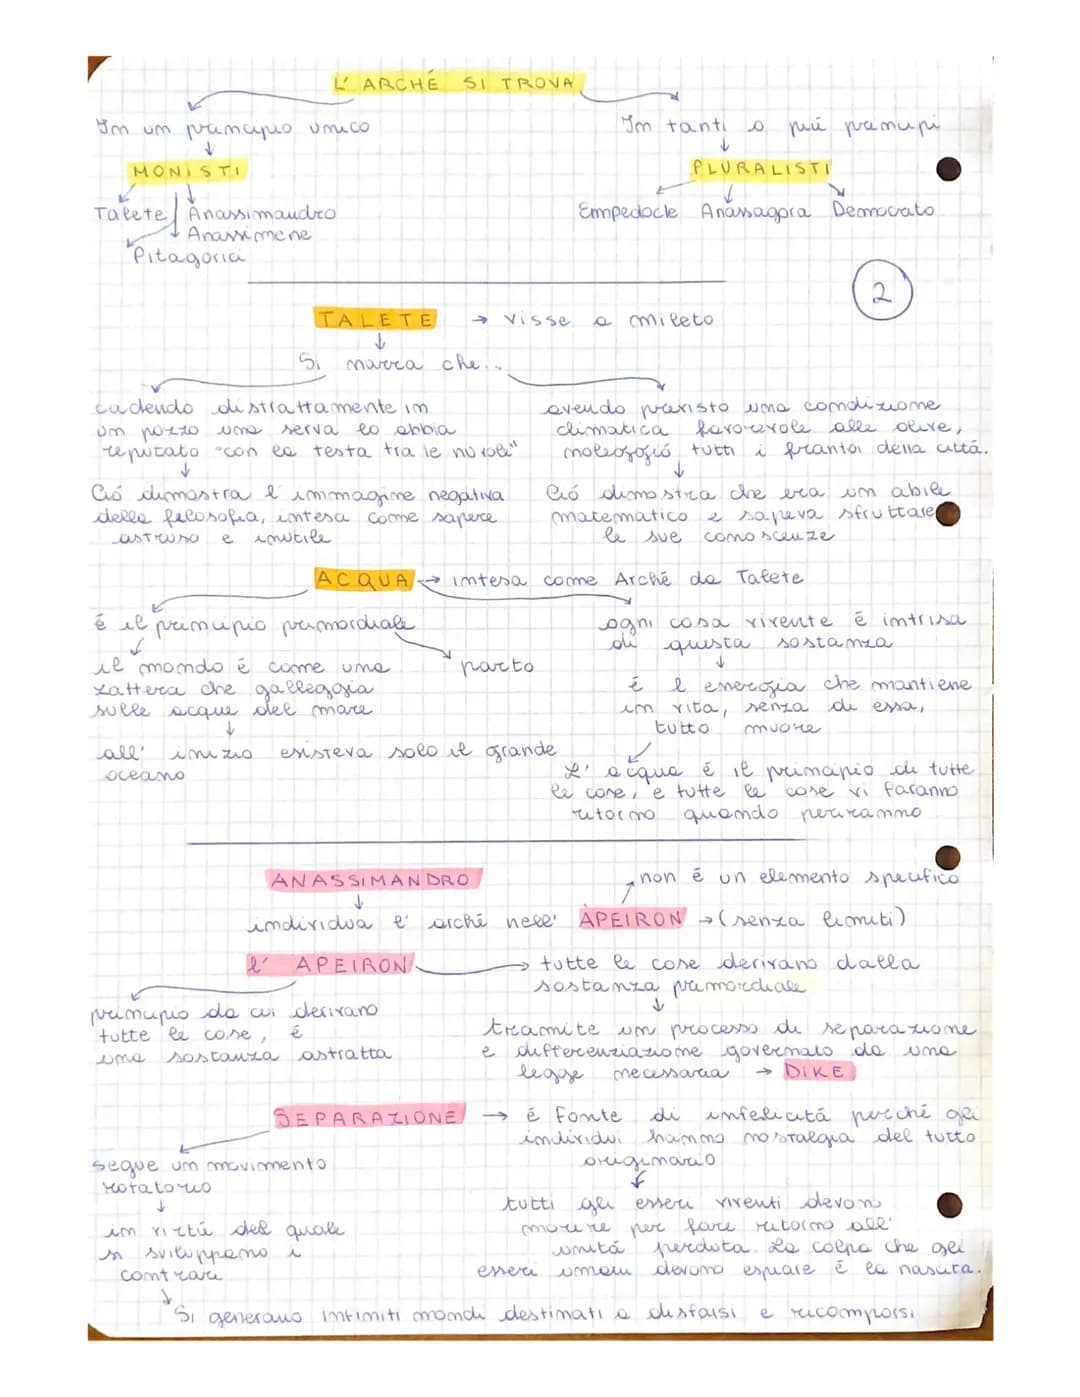 L' ARCHÉ SI TROVA
In un principio unico
In tanti o più principi
MONISTI
PLURALISTI
Talete Anassimandro
Anassimene
Pitagorici
Empedocle Anassagora Democrito
2
TALETE → visse a mileto
Si narra che...
cadendo distrattamente in
un pozzo una serva lo abbia
reputato "con la testa tra le nuvole"
Ció dimostra l'immagine negativa
della filosofia, intesa come sapere
astruso e inutile
avendo previsto una condizione
climatica favorevole alle olive,
noleggiò tutti i frantoi della città.
Ció dimostra che era un abile
matematico e sapeva sfruttare
le sue conoscenze
ACQUA → intesa come Arché da Talete
é il principio primordiale
il mondo é come una
zattera che galleggia
sulle acque del mare
parto
all' inizio esisteva solo il grande
oceano
ogni cosa vivente é intrisa
di questa sostanza
é l'energia che mantiene
in vita, senza di essa,
tutto muore
L' acqua é il principio di tutte
le cose, e tutte le cose vi faranno
ritorno quando periranno
ANASSIMANDRO
non é un elemento specifico
individua l' arché nell' ÀPEIRON → (senza limiti)
l' APEIRON → tutte le cose derivano dalla
sostanza primordiale
principio da cui derivano
tutte le cose, é
una sostanza astratta
tramite un processo di separazione
e differenziazione governato da una
legge necessaria → DIKE
SEPARAZIONE → é fonte di infelicitá perché gli
individui hanno nostalgia del tutto
originario
segue un movimento
rotatorio
in virtú del quale
si sviluppano i
contrari
tutti gli esseri viventi devono
morire per fare ritorno all'
unitá perduta. La colpa che gli
esseri umani devono espiare é la nascita.
Si generano infiniti mondi destinati a disfarsi e ricomporsi